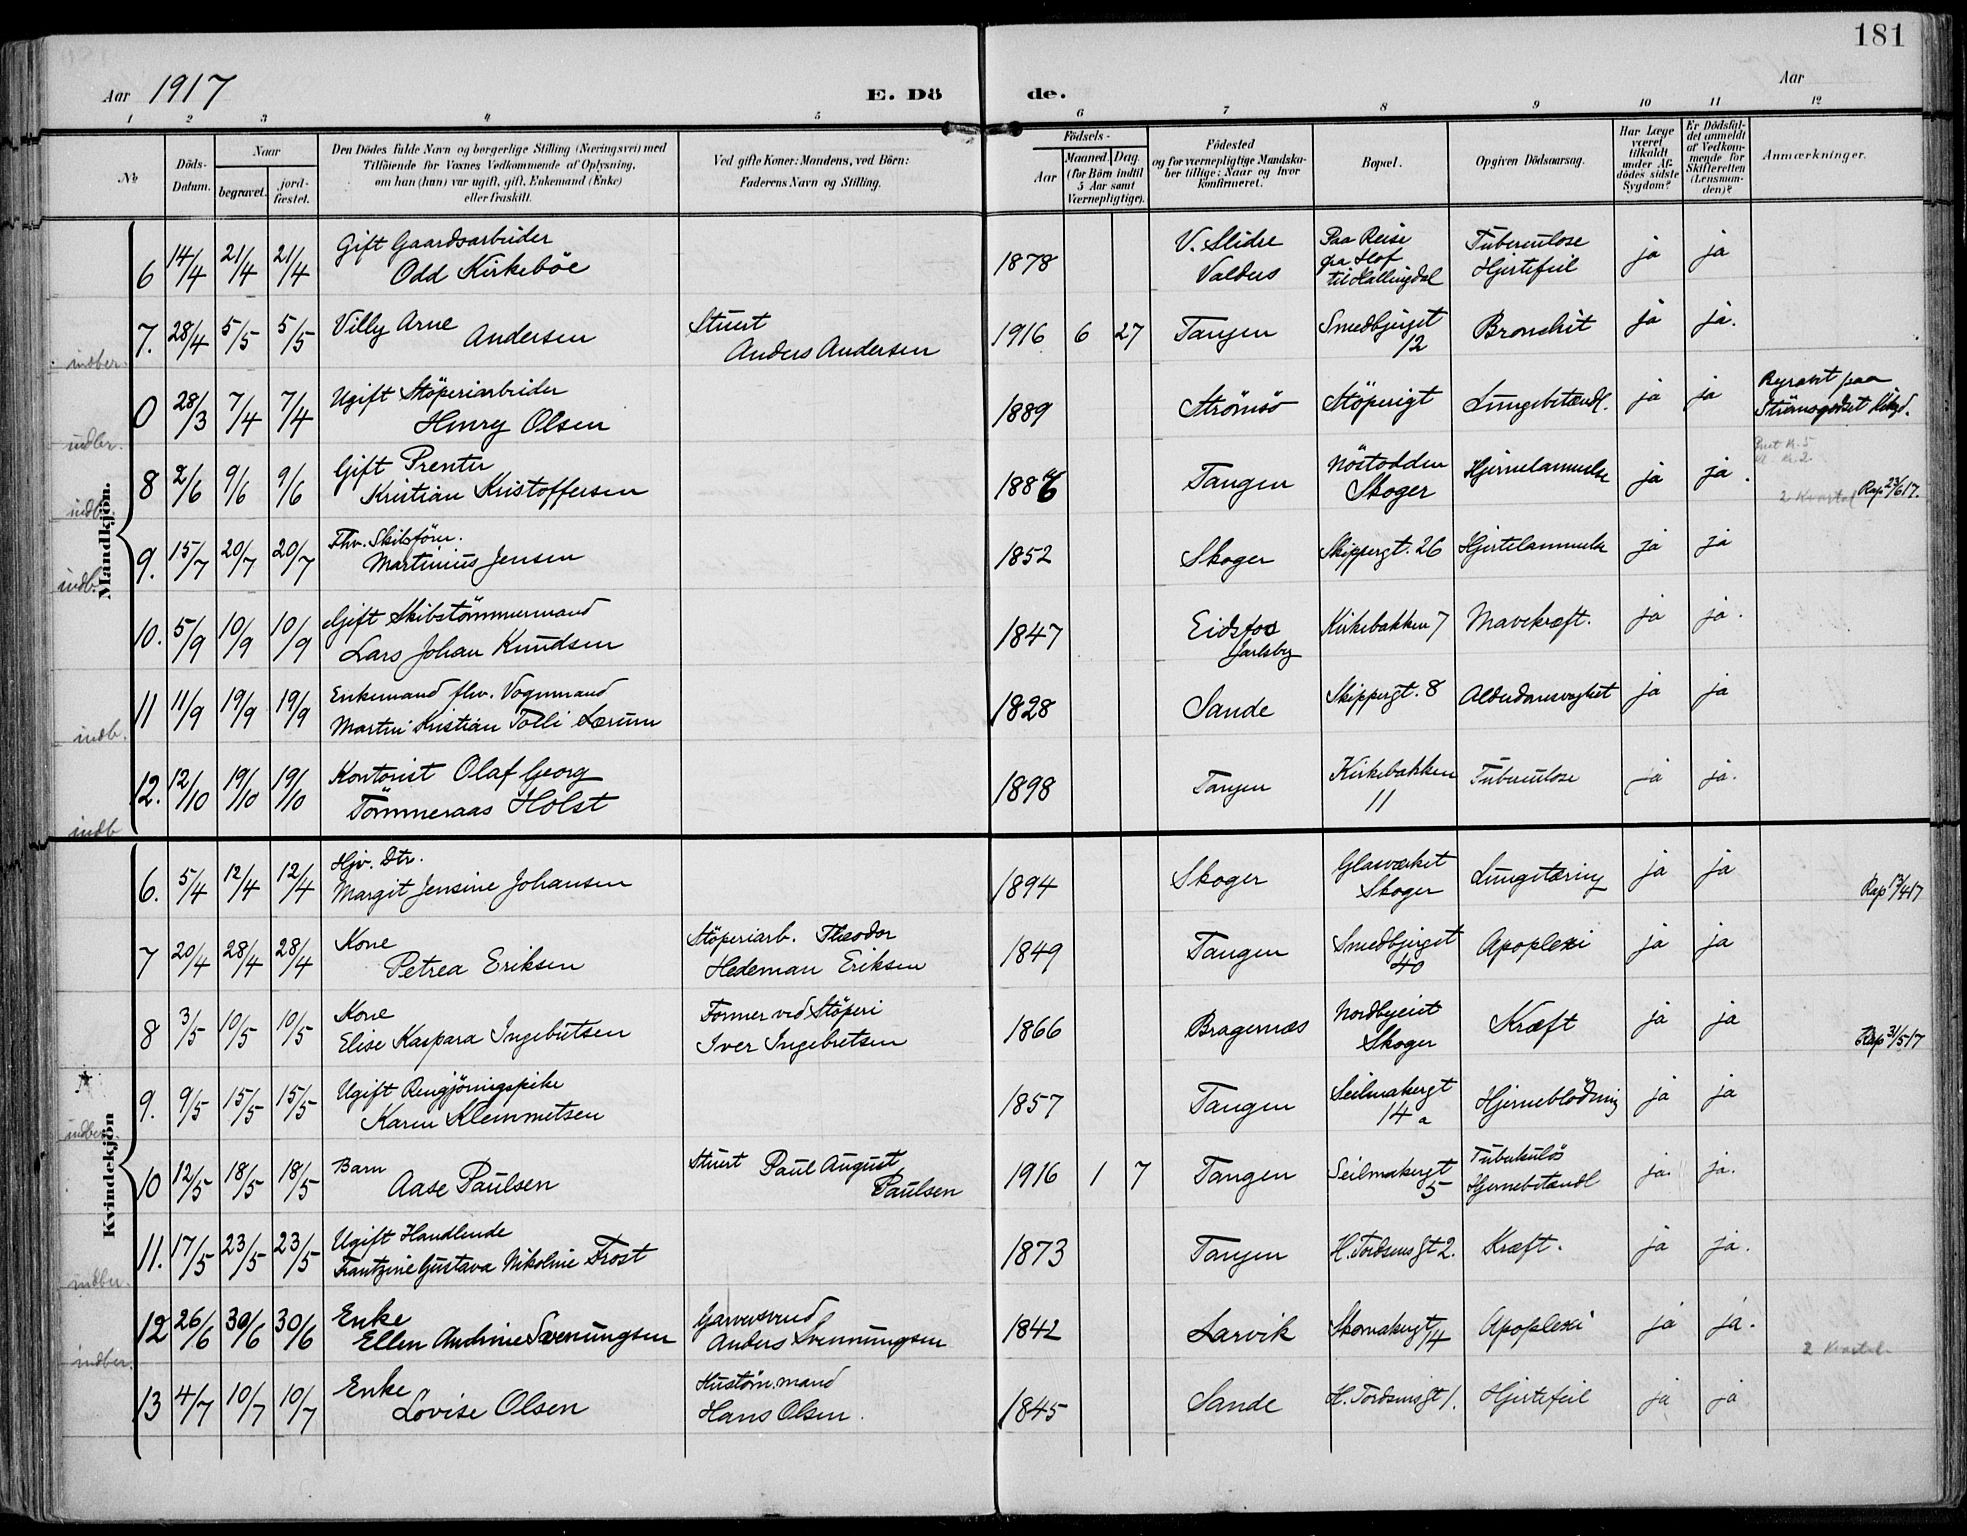 181
Aar 1917
E. Döde.
Aar
1 2 3 4 5 6 7 8 9 10 11 12
No
Döds-Datum.
Naar
begravet.
jord-fæstet.
Den Dödes fulde Navn og borgerlige Stilling (Næringsvei) med
Tilföiende for Voxnes Vedkommende af Oplysning,
om han (hun) var ugift, gift, Enkemand (Enke)
eller fraskilt.
Ved gifte Koner: Mandens, ved Börn:
Faderens Navn og Stilling.
Födsels-
Aar
Maaned. Dag.
(for Börn indtil
5 Aar samt
Værnepligtige).
Födested
og for værnepligtige Mandska-
ber tillige: Naar og hvor
konfirmeret.
Bopæl.
Opgiven Dödsaarsag.
Har Læge
været
tilkaldt
under Af-
dödes sidste
Sygdom?
Er Dödsfal-
det anmeldt
af Vedkom-
mende for
Skifteretten
(Lensman-
den)?
Anmærkninger.
Mandkjön.
6 14/4 21/4 21/4 Gift Gaardsarbeider
Odd Kirkeböe
1878 V. Slidre
Valders
Paa Reise
fra Hof
til Hallingdal
Tuberculose
Hjertefeil
ja ja
7. 28/4 5/5 5/5 Villy Arne
Andersen
Stuert
Anders Andersen
1916 6 27 Tangen Smedbjerget
12
Bronchit ja ja.
indber.
0 28/3 7/4 7/4 Ugift Stöperiarbeider
Henry Olsen
1889 Strömsö Stöperigt Lungebetændl. ja ja
indber.
8 2/6 9/6 9/6 Gift Prenter
Kristian Kristoffersen
1886 Tangen Nöstodden
Skoger
Hjernelammelse ja ja.
2 Kvartal Rap 23/6 17.
indb.
9. 15/7 20/7 20/7 Fhv. Skibsförer.
Martinius Jensen
1852 Skoger Skippergt. 26 Hjertelammelse ja ja
indb.
10. 5/9 10/9 10/9 Gift Skibstömmermand
Lars Johan Knudsen
1847 Eidsfos
Jarlsby
Kirkebakken 7 Mavekræft. ja ja.
11 11/9 19/9 19/9 Enkemand fhv. Vognmand
Martin Kristian Tolli Lærum
1828 Sande Skippergt. 8 Alderdomsvaghet ja ja
indb.
12. 12/10 19/10 19/10 Kontorist Olaf Georg
Tömmeraas Holst
1898 Tangen Kirkebakken
11
Tuberculose ja ja.
indb
Kvindekjön
6. 5/4 12/4 12/4 Hjv. Dtr.
Margit Jensine Johansen
1894 Skoger Glasværket
Skoger
Lungetæring ja ja
Rap 13/4 17
7 20/4 28/4 28/4 Kone
Petrea Eriksen
Stöperiarb. Theodor
Hedeman Eriksen
1849 Tangen Smedbjerget
40
Apoplexi ja ja
8 3/5 10/5 10/5 Kone
Elise Kaspara Ingebretsen
Former ved Stöperi
Iver Ingebretsen
1866 Bragernæs Nordbyeiet
Skoger
Kræft ja ja
Rap 31/5 17
9. 9/5 15/5 15/5 Ugift Rengjöringspike
Karen Klemmetsen
1857 Tangen Seilmakergt
14 a
Hjerneblödning ja ja
indber.
10 12/5 18/5 18/5 Barn
Aase Paulsen
Stuert Paul August
Paulsen
1916 1 7 Tangen Seilmakergt
5
Tuberkulös
Hjernebetændl
ja. ja.
11. 17/5 23/5 23/5 Ugift Handlende
Frantzine Gustava Nikoline Frost
1873 Tangen H. Tordsensgt 2. Kræft. ja ja.
indber.
12 26/6 30/6 30/6 Enke
Ellen Andrine Svennungsen
Garversvend
Anders Svennungsen
1842 Larvik Skomakergt 4 Apoplexi ja ja.
2 Kvartal
indber.
13 4/7 10/7 10/7 Enke
Lovise Olsen
Hustöm.mand
Hans Olsen.
1845 Sande H. Tordsensgt 1. Hjertefeil ja ja